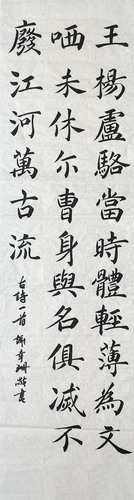 王楊盧駱當時體輕薄為文
哂未休尒曹身與名俱滅不
廢江河萬古流
古詩一首 書